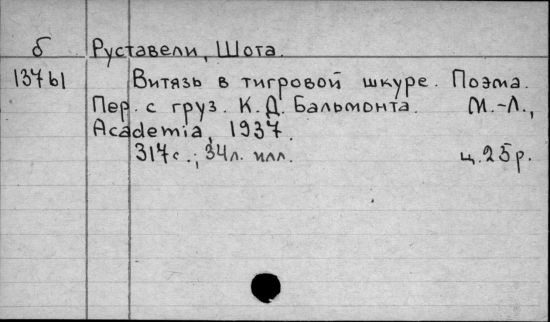 б Руставели, Шота.
137ы Витязь в тигровой шкуре. Поэма.
Пер. с груз. К.Д. Бальмонта. М.-Л.,
Academia, 1937.
317с.; 34л. илл. ц.25р.